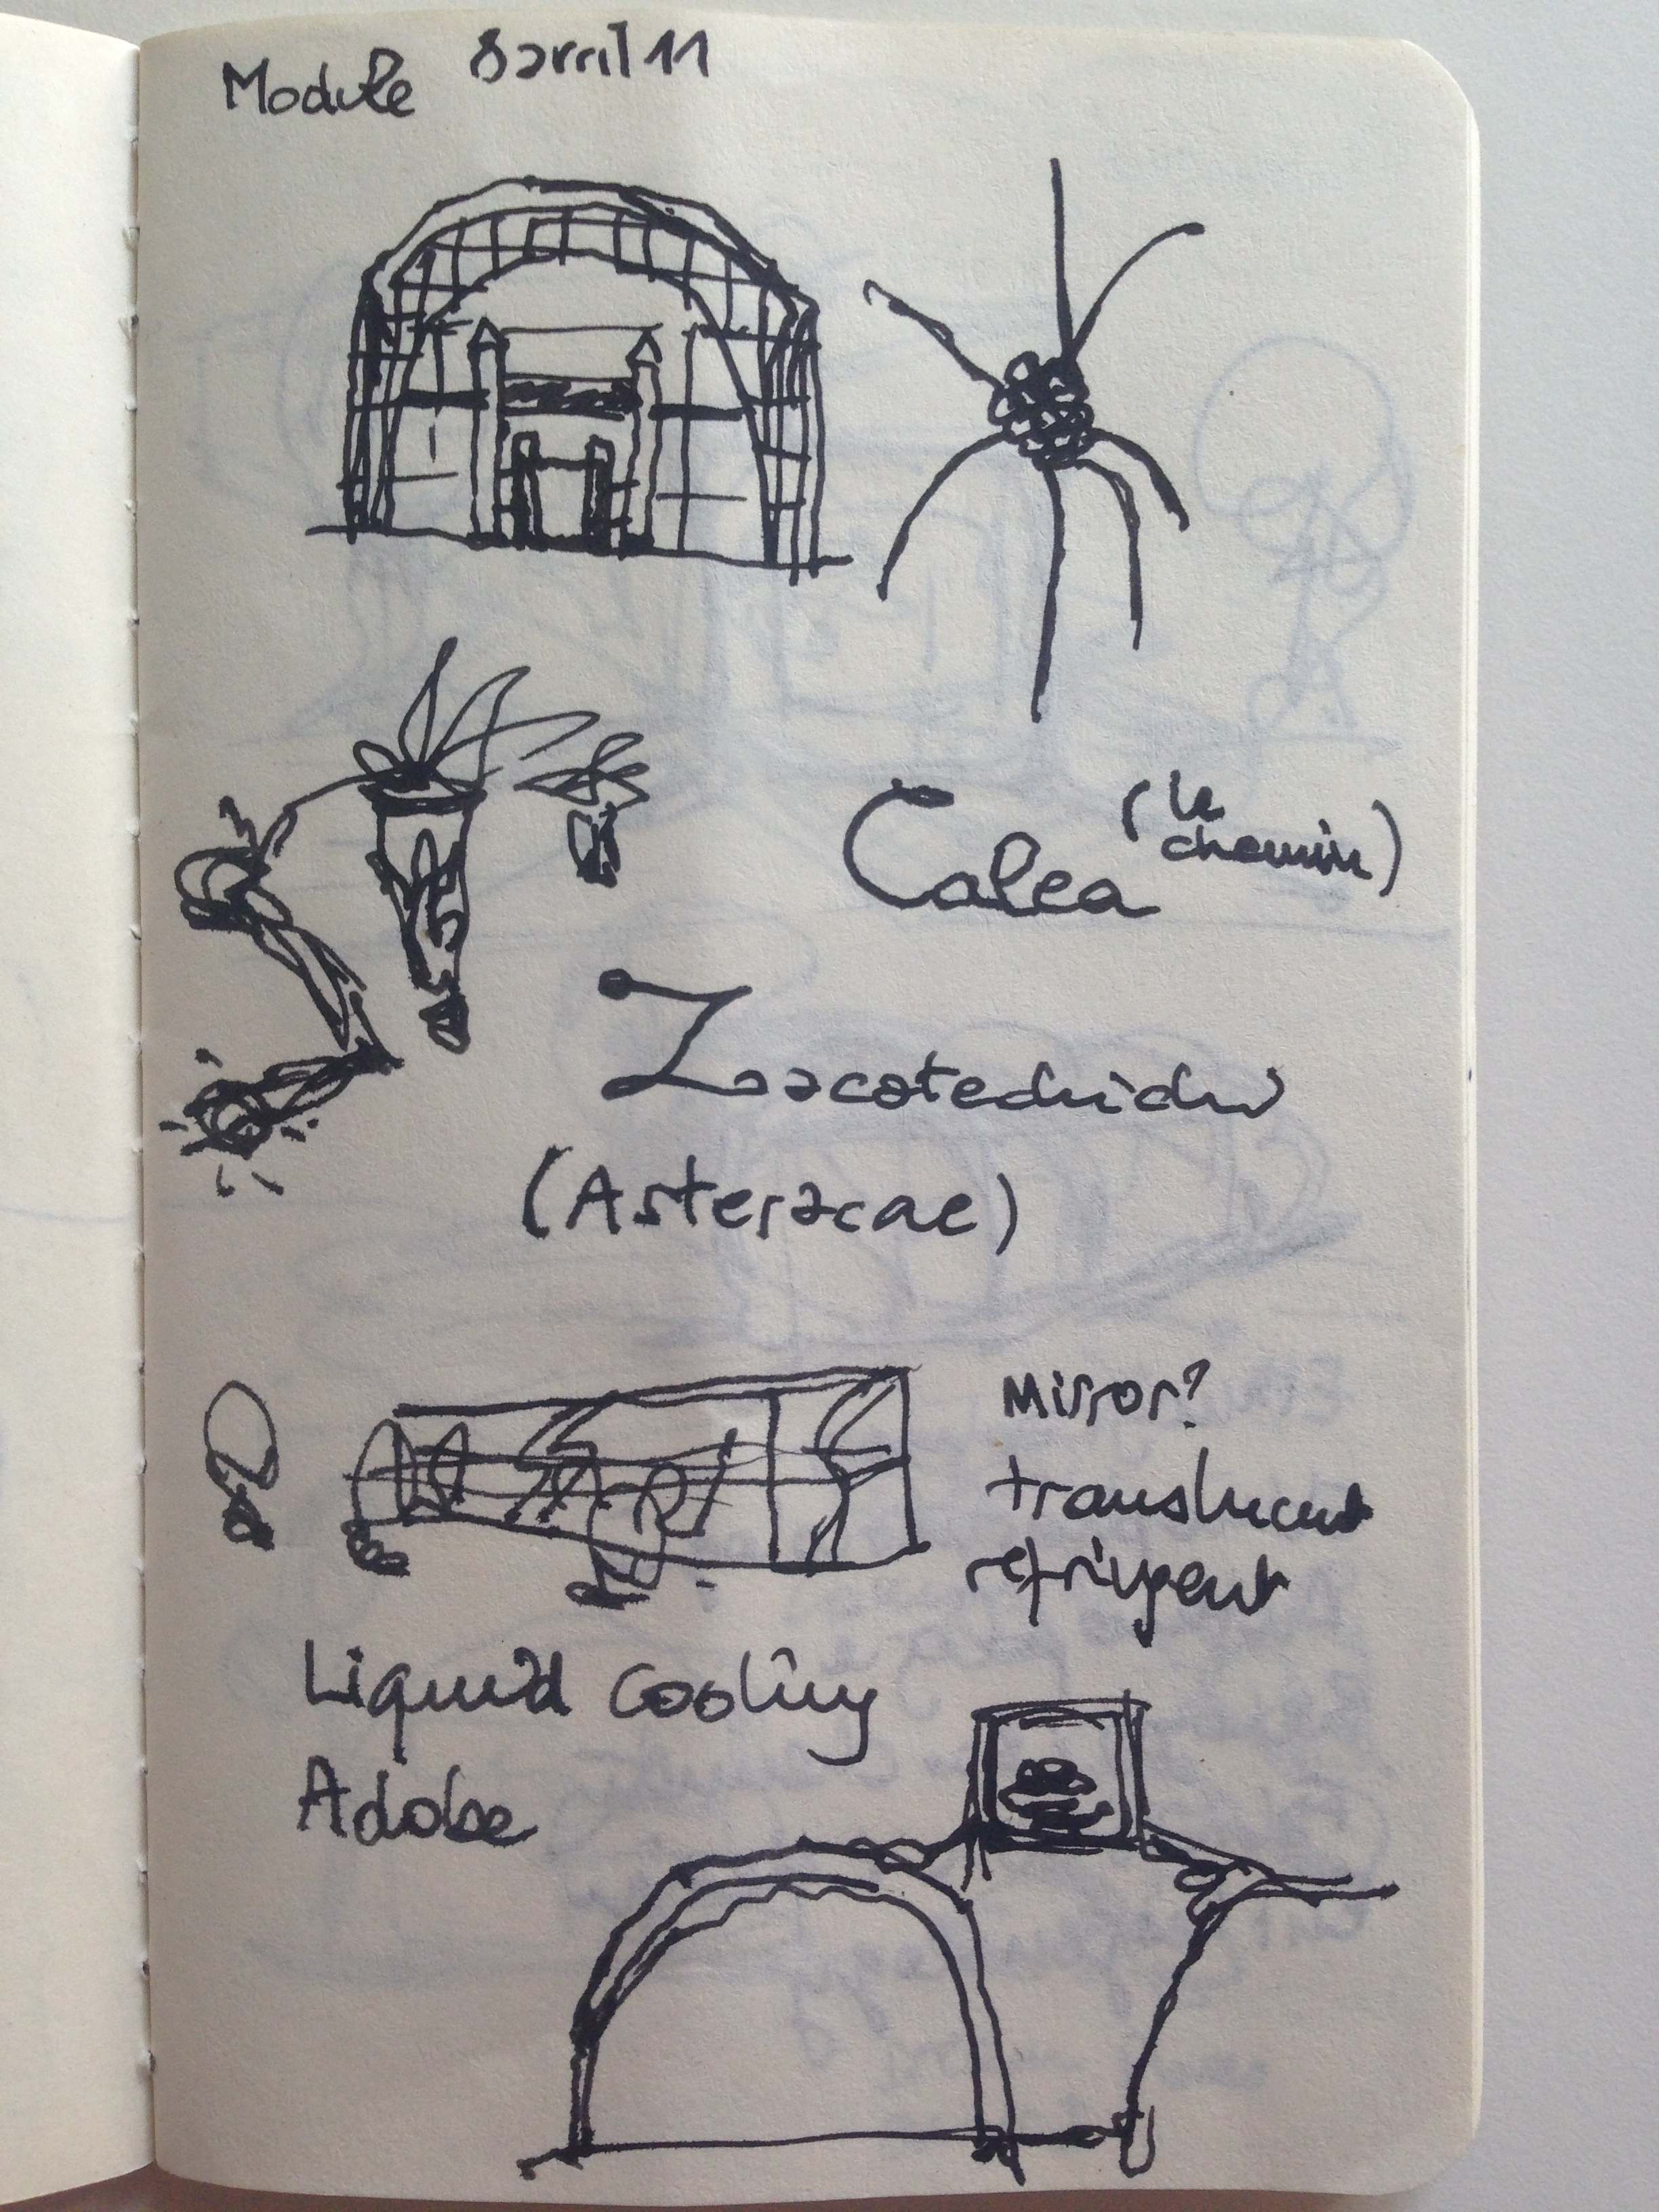 Module Barril 11
Calea (le
chemin)
Zacatechichi
(Asteracae)
Mirror?
translucent
refrigent
Liquid cooling
Adobe